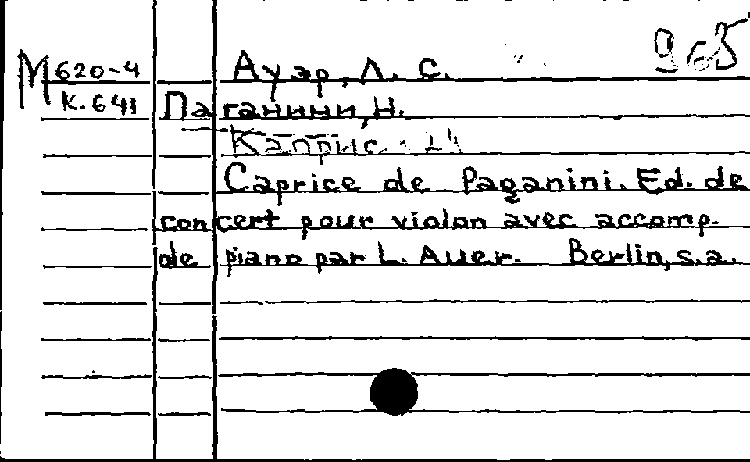 М 620-4 Ауэр, Л. С.
К. 641 Паганини, Н.
Каприс. 24
Caprice de Paganini. Ed. de
concert pour violon avec accomp.
de piano par L. Auer. Berlin, s.a.